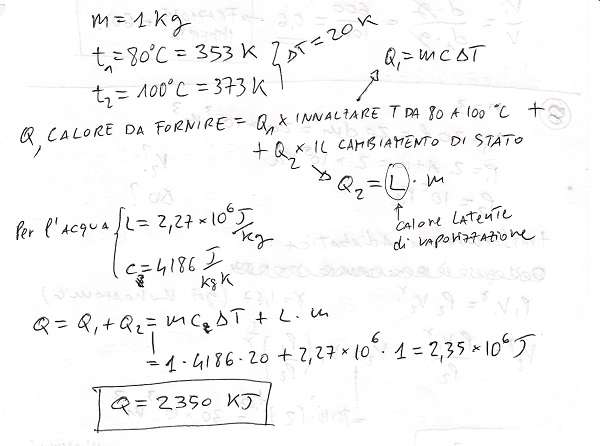 m = 1 kg
t₁ = 80°C = 353 K
ΔT = 20 K
t₂ = 100°C = 373 K
Q₁ = m c ΔT
Q, CALORE DA FORNIRE = Q₁ × INNALZARE T DA 80 A 100 °C +
+ Q₂ × IL CAMBIAMENTO DI STATO
Q₂ = L · m
CALORE LATENTE
di VAPORIZZAZIONE
Per l'ACQUA
L = 2,27 × 10⁶ J/kg
c = 4186 J/kg K
Q = Q₁ + Q₂ = m c ΔT + L · m
= 1 · 4186 · 20 + 2,27 × 10⁶ · 1 = 2,35 × 10⁶ J
Q = 2350 KJ